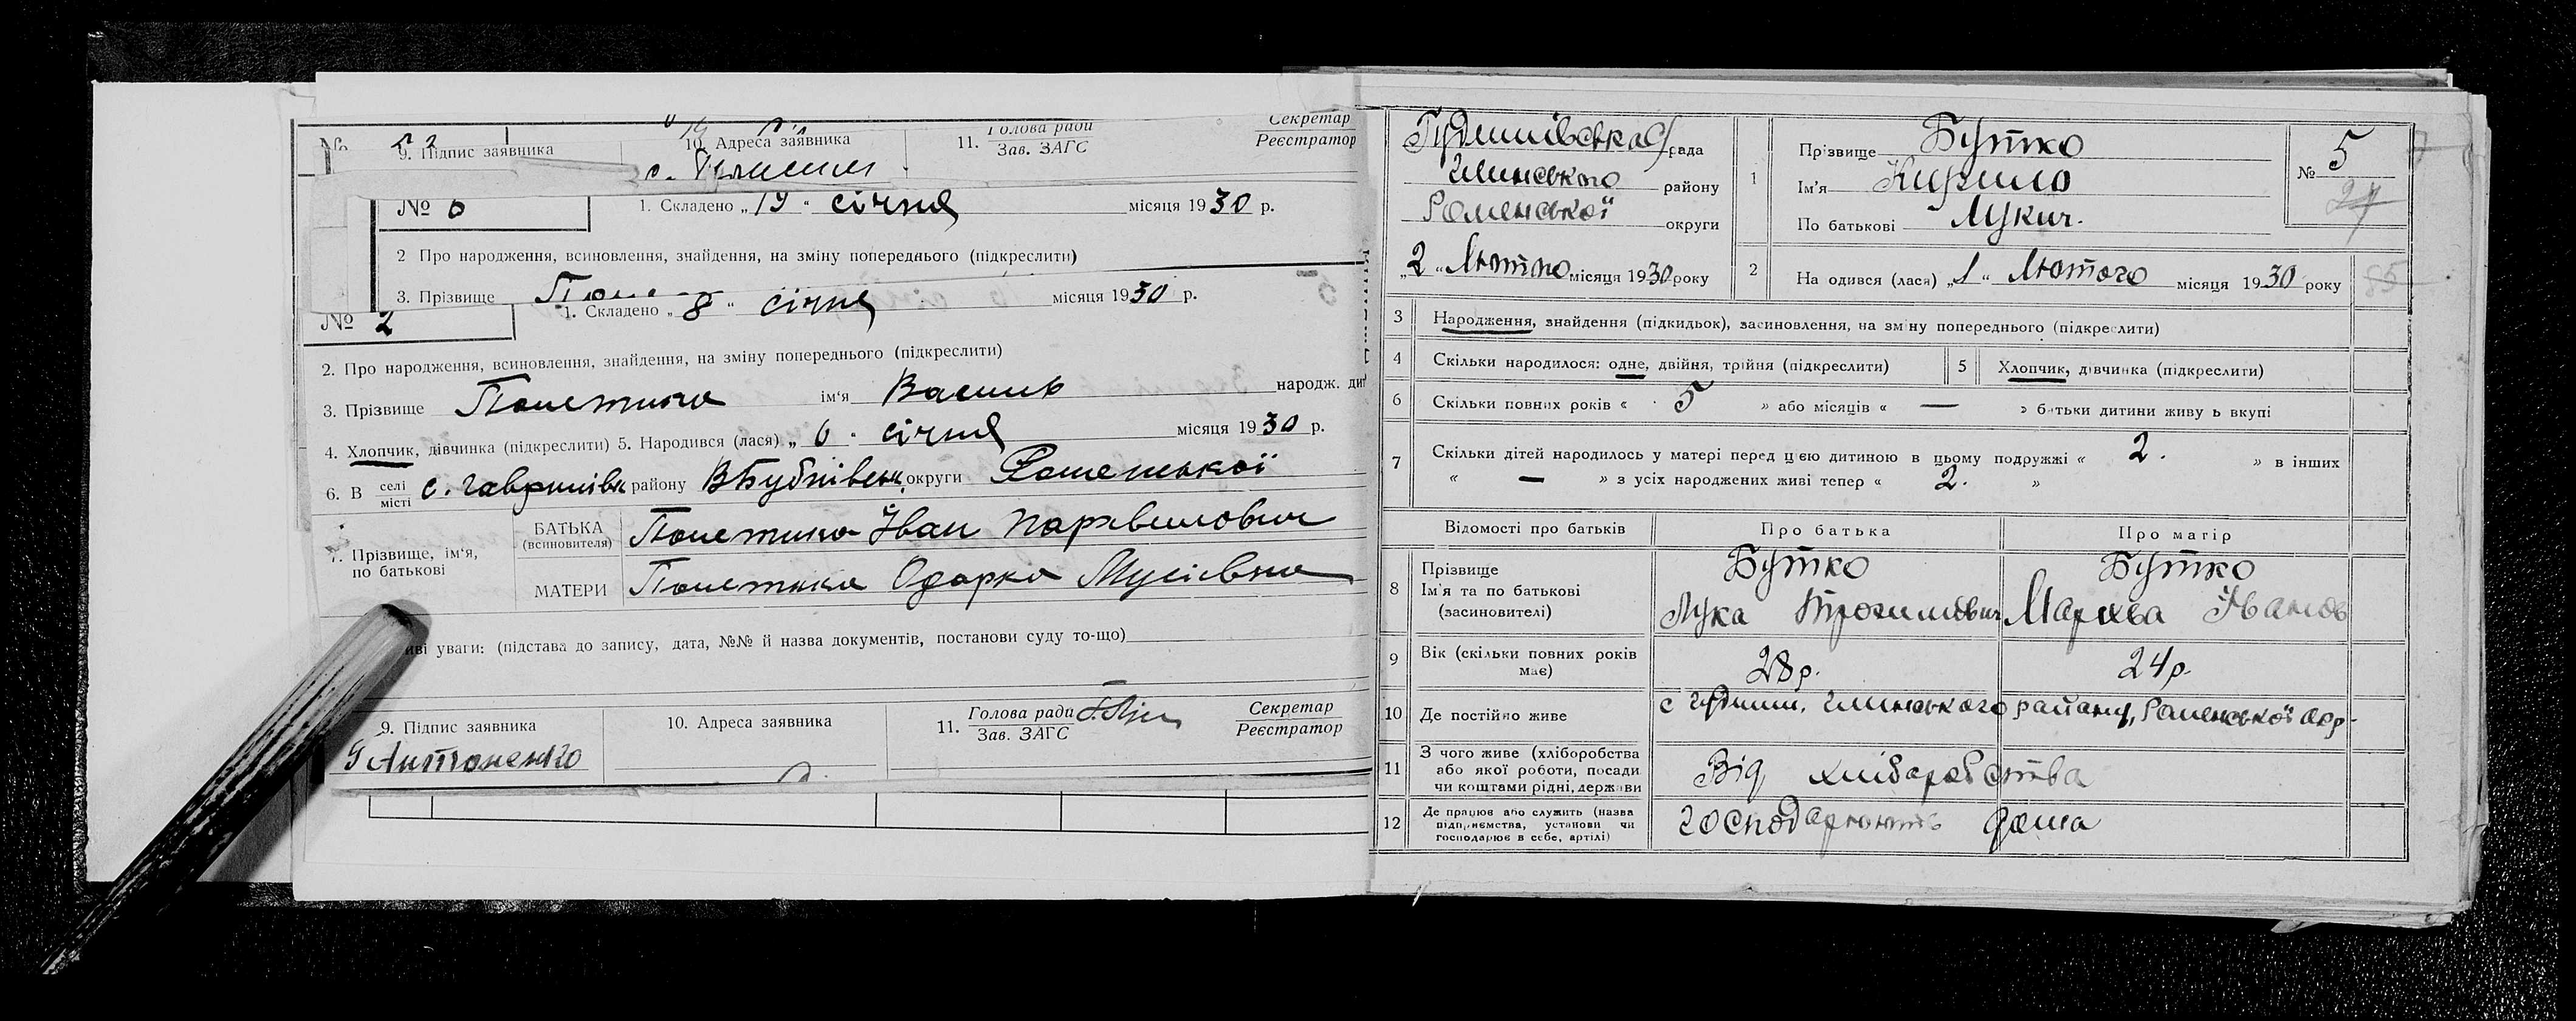 №
9. Підпис заявника
10. Адреса заявника
11. Голова ради
Зав. ЗАГС
Секретар
Реєстратор
с.
№ 6
1. Складено „ 19 “ січня місяця 1930 р.
2 Про народження, всиновлення, знайдення, на зміну попереднього (підкреслити)
3. Прізвище
№ 2
1. Складено „ 8 “ січня місяця 1930 р.
2. Про народження, всиновлення, знайдення, на зміну попереднього (підкреслити)
3. Прізвище Полетика ім‘я Василь народж. дит
4. Хлопчик, дівчинка (підкреслити) 5. Народився (лася) „ 6 “ січня місяця 1930 р.
6. В селі
місті
с. Гаврилівк району В Бубнівськ. округи Роменської
7. Прізвище, ім‘я,
по батькові
БАТЬКА
(всиновителя)
Полетика Іван
МАТЕРИ
Полетика Одарка Мусіївна
иві уваги: (підстава до запису, дата, №№ й назва документів, постанови суду то-що)
9. Підпис заявника
Антоненко
10. Адреса заявника
11. Голова ради
Зав. ЗАГС
Секретар
Реєстратор
рада
Глинського району
Роменської округи
„ 2 “ Лютого місяця 1930 року
1
Прізвище Бутко
Ім'я Кирило
По батькові Лукич.
№ 5
27
2
На одився (лася) „ 1 “ Лютого місяця 1930 року
85
3 Народження, знайдення (підкидьок), засиновлення, на зміну попереднього (підкреслити)
4 Скільки народилося: одне, двійня, трійня (підкреслити)
5 Хлопчик, дівчинка (підкреслити)
6 Скільки повних років « 5 » або місяців « — » батьки дитини живу ь вкупі
7 Скільки дітей народилось у матері перед цією дитиною в цьому подружжі « 2. » в інших
« — » з усіх народжених живі тепер « 2. »
Відомості про батьків
Про батька
Про матір
8 Прізвище
Ім'я та по батькові
(засиновителі)
Бутко
Лука Трохимович
Бутко
Марфа Іванов
9 Вік (скільки повних років
має)
28 р.
24 р.
10 Де постійно живе
с Глинського району, Роменської окр.
11 З чого живе (хліборобства
або якої роботи, посади
чи коштами рідні, держави
Від хліборобства
12 Де працює або служить (назва
підприємства, установи чи
господарює в себе, артілі)
господарюють дома